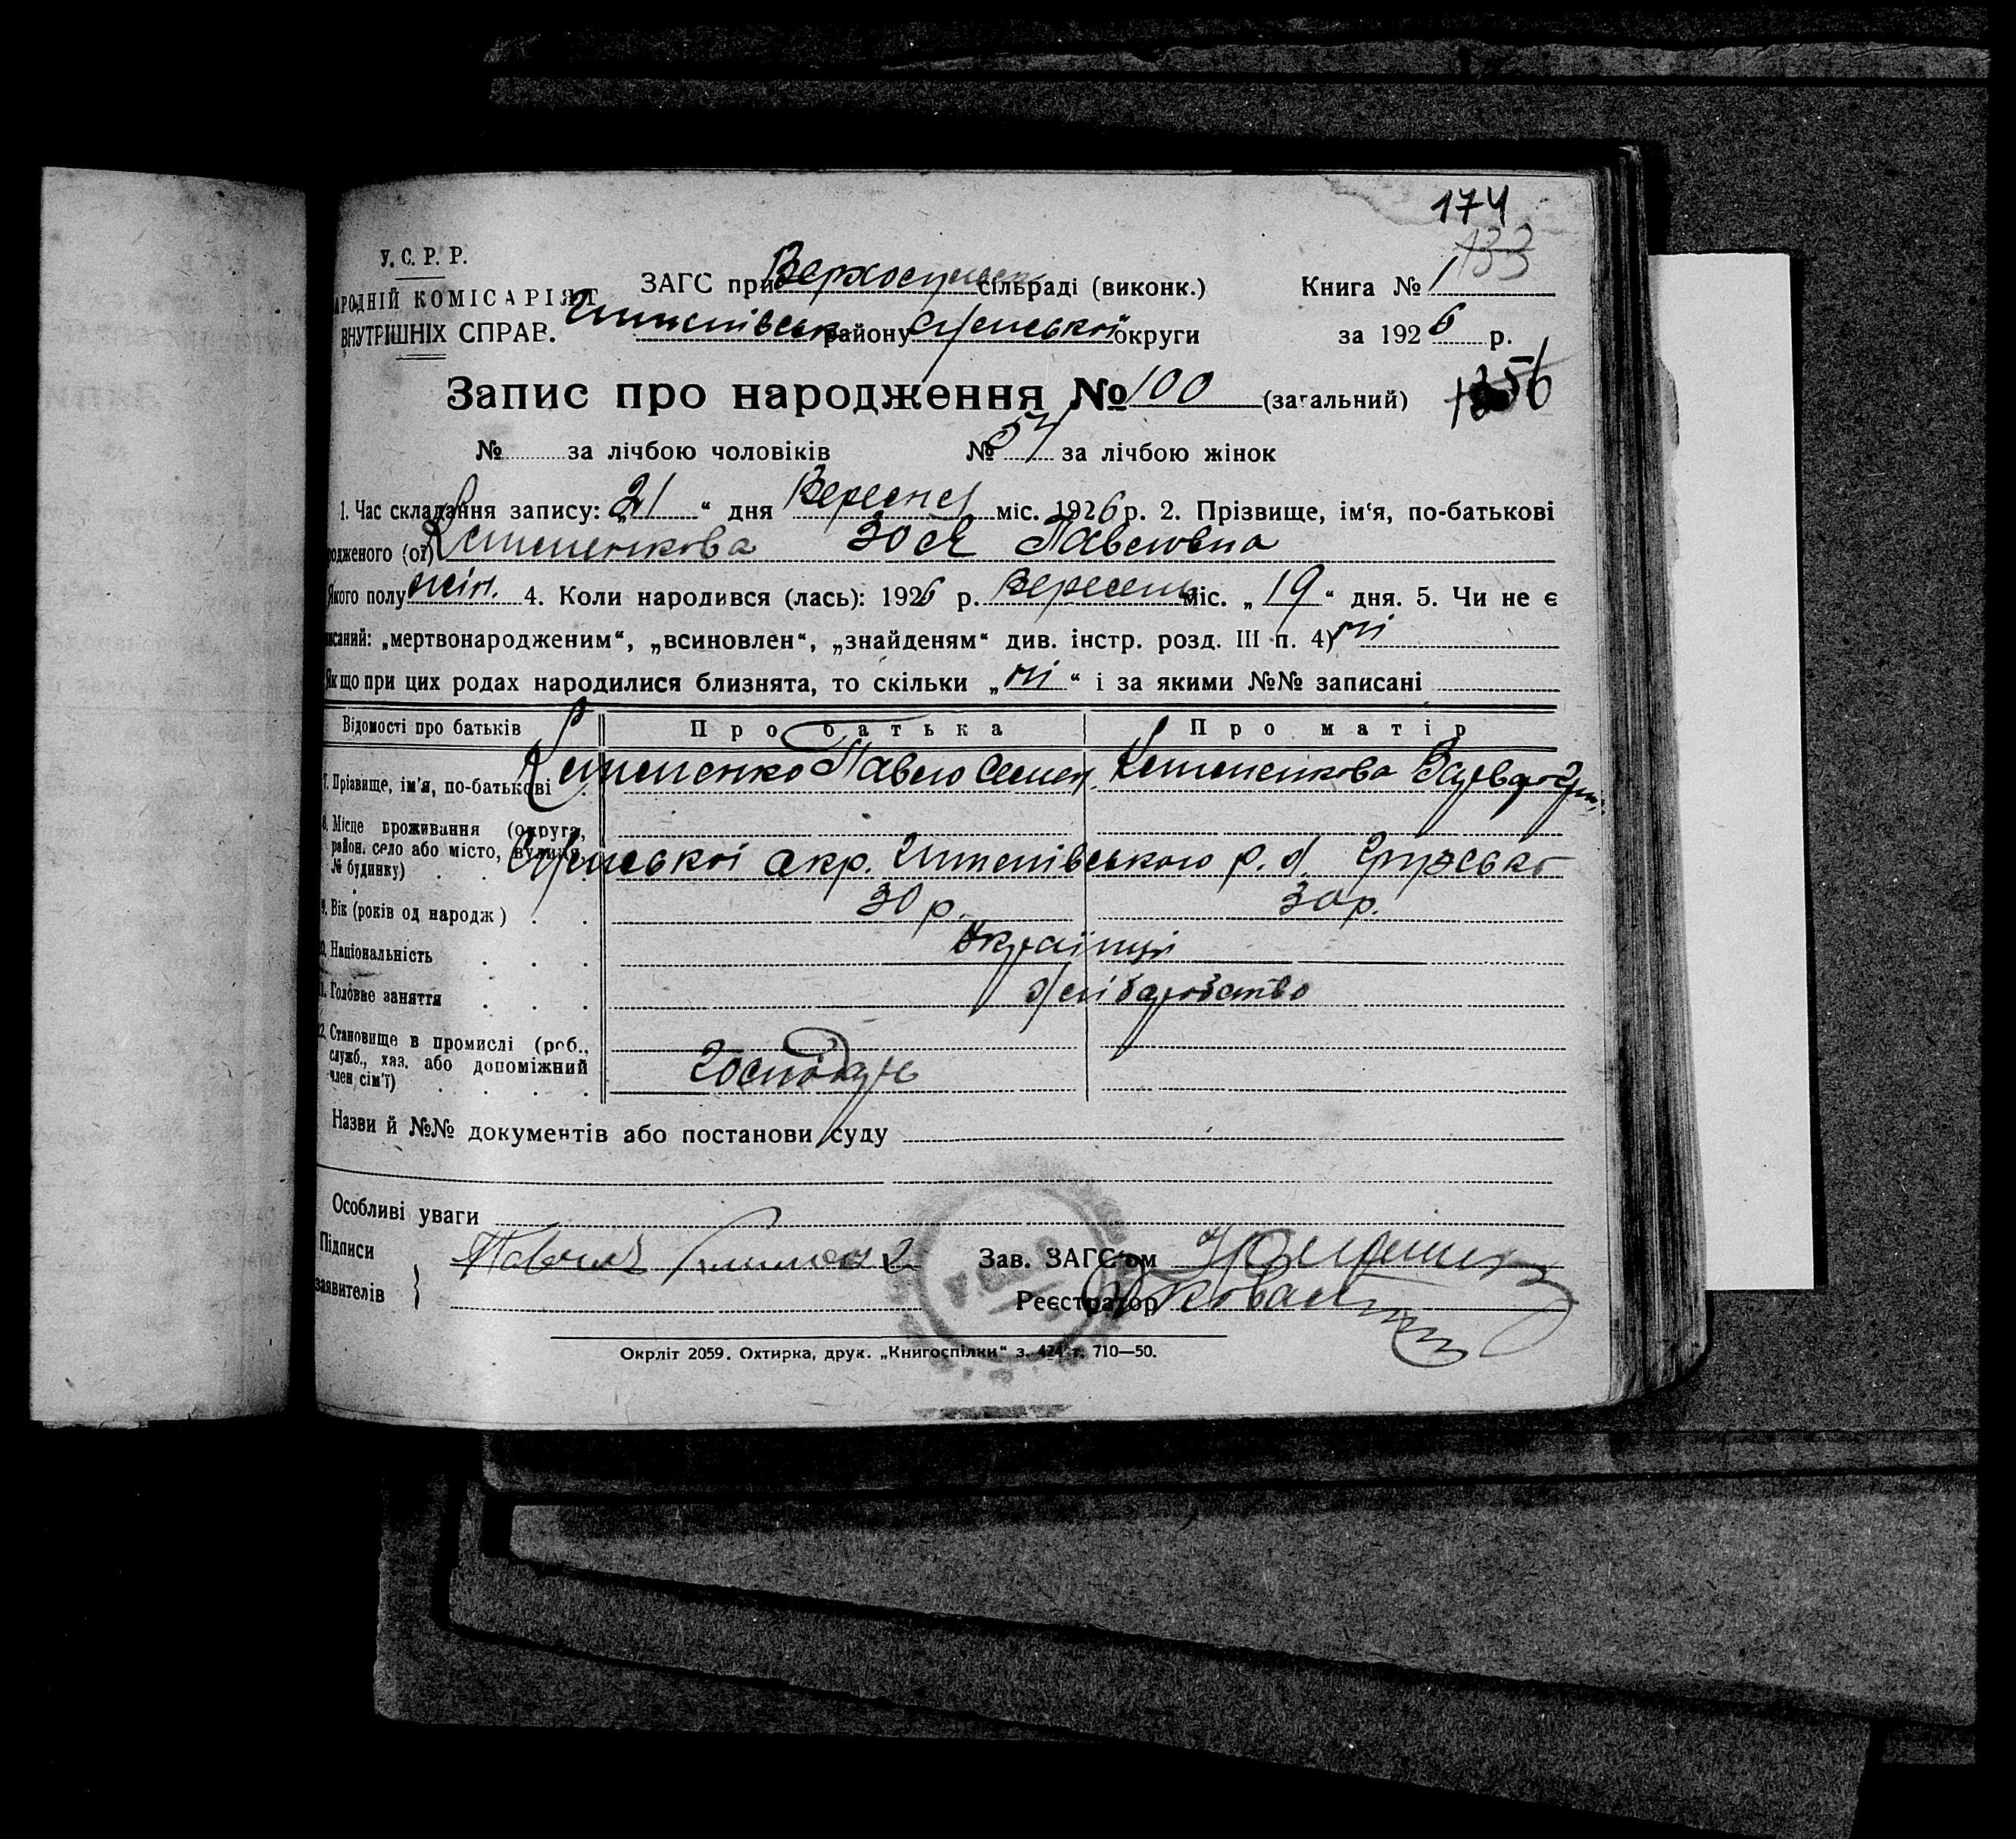 174
133
У. С. Р. Р.
ЗАГС при Верхосулськ сільраді (виконк.) Книга № 1
АРОДНІЙ КОМІСАРІЯТ
ВНУТРІШНІХ СПРАВ. району Сумської округи за 1926 р.
Запис про народження № 100 (загальний) 1356
№ за лічбою чоловіків № 54 за лічбою жінок
1. Час складання запису: „21“ дня Вересня міс. 1926 р. 2. Прізвище, ім‘я, по-батькові
родженого (ої) Зося Павловна
Якого полу жін. 4. Коли народився (лась): 1926 р. Вересень міс. „19“ дня. 5. Чи не є
писаний: „мертвонародженим“, „всиновлен“, „знайденям“ див. інстр. розд. III п. 4) ні
Якщо при цих родах народилися близнята, то скільки „ні“ і за якими №№ записані
Відомості про батьків Про батька Про матір
7. Прізвище, ім'я, по-батькові Павло Семен
8. Місце проживання (округа,
район, село або місто, вулиця,
№ будинку) Сумської окр. р. с.
9. Вік (років од народж) 30 р. 30 р.
10. Національність Українці
11. Головне заняття Хліборобство
12. Становище в промислі (роб.,
служб., хаз. або допоміжний
член сім'ї) Господарь
Назви й №№ документів або постанови суду
Особливі уваги
Підписи
заявителів } Зав. ЗАГС'ом
Реєстратор
УСРР
Окрліт 2059. Охтирка, друк. „Книгоспілки“ з. 424 т. 710—50.